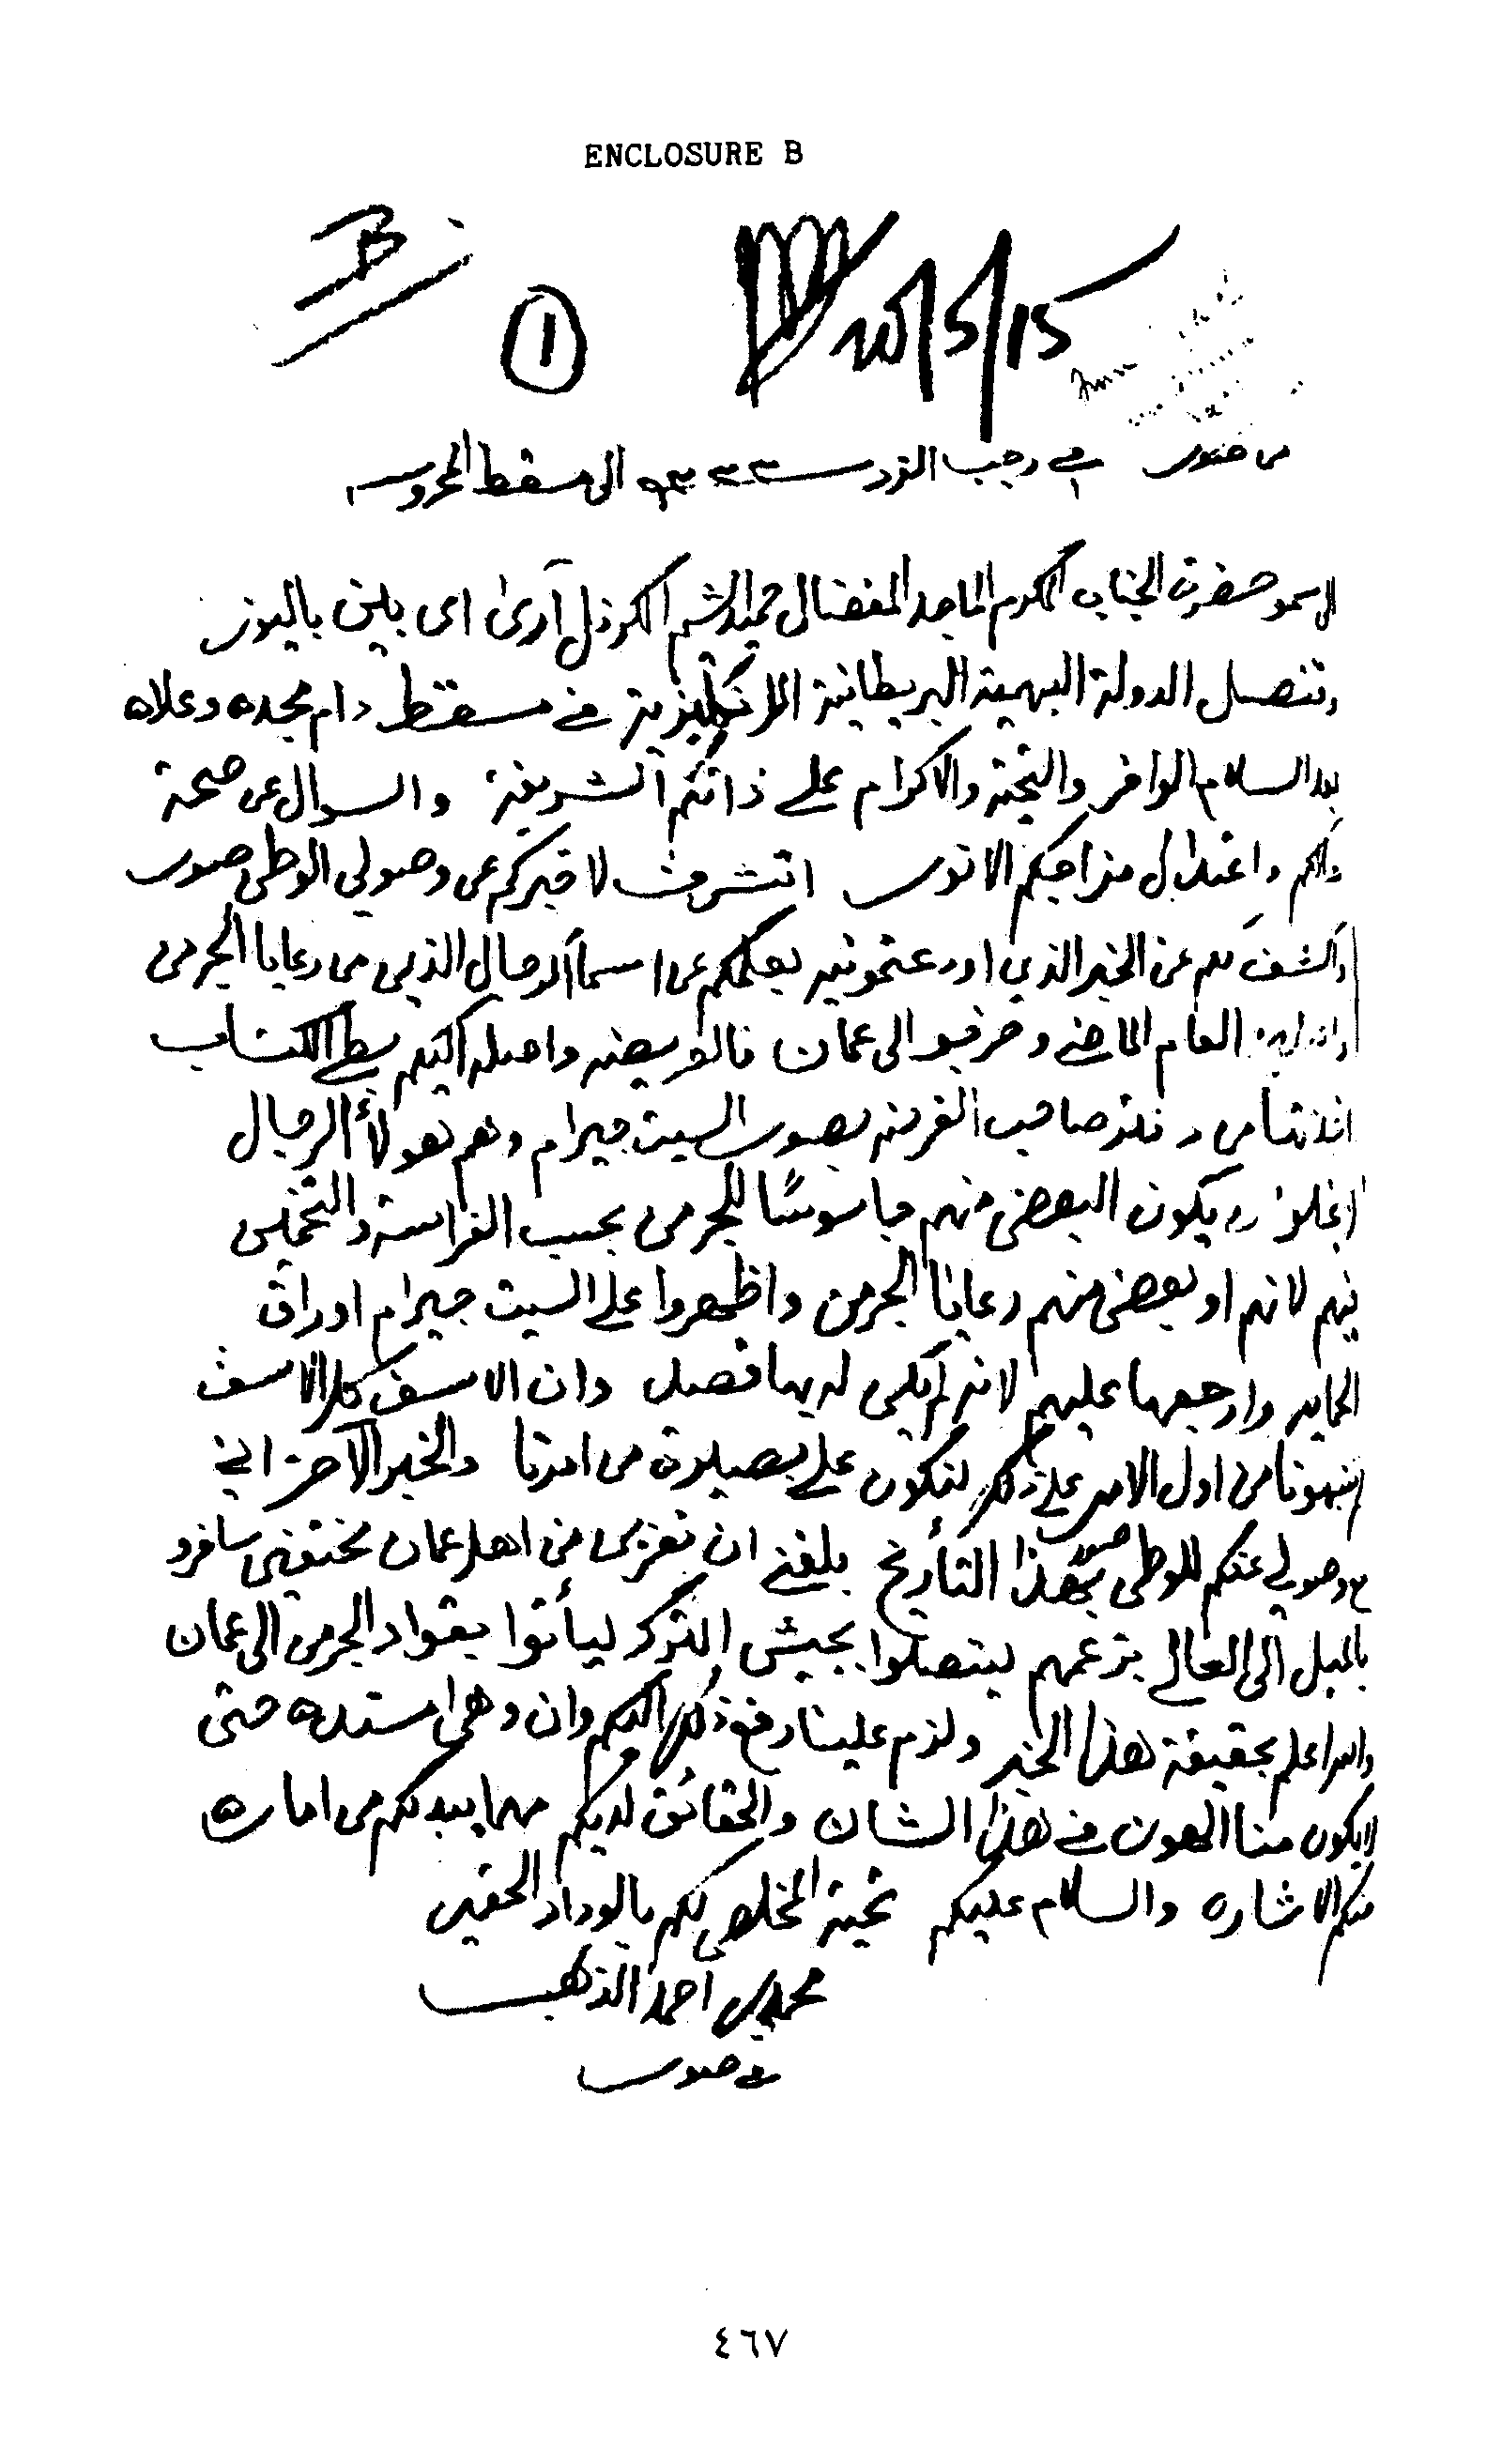 ENCLOSURE B
B
١
20/5/15
من صور في رجب الفرد ١٣٣٣ الى مسقط المحروسه
لسمو حضرت الجناب المكرم الماجد المفضال حميد الشيم الكرنل آر اى اى بلين باليوز
وقنصل الدولة البهية البريطانية الانكليزية في مسقط دام مجده وعلاه
بعد السلام الوافر والتحية والاكرام على ذاتكم الشريفة والسوال عن صحة
واعتدال مزاجكم الانور اتشرف لاخبركم عن وصولي الوطن صور
عن الخبر الذي اودعتموني بعلمكم عن اسمآ الرجال الذين من رعايا الجرمن
العام الماضي الى عمان واصله اليكم بطي الكتاب
صاحب الفرضه بصور السيت جيرام وهم هولاء الرجال
يكون البعض منهم جاسوسًا للجرمن بحسب الفراسة والتخمين
فيهم لانهم او بعض منهم رعايا الجرمن واظهروا على السيت جيرام اوراق
الحمايه وارجعها عليهم لانه لم يكن له بها فصل وان الاسف كل الاسف
لم ينبهونا من اول الامر على ذلك لنكون على بصيرة من امرنا والخبر الآخر اني
مع وصولي عنكم للوطن صور بهذا التأريخ بلغني ان نفرين من اهل عمان مختفين سافرو
الى العالي بزعمهم ليتصلوا بجيش الترك ليأتوا بقواد الجرمن الى عمان
والله اعلم بحقيقة هذا الخبر ولزم علينا رفع ذلك اليكم وان وهي مستده حتى
لايكون منا الهون في هذا الشان والحقائق لديكم مهما يبد لكم من اماره
منكم الاشاره والسلام عليكم تحية المخلص لكم بالوداد الحقير
محمد بن احمد الذهب
في صور
٤٦٧